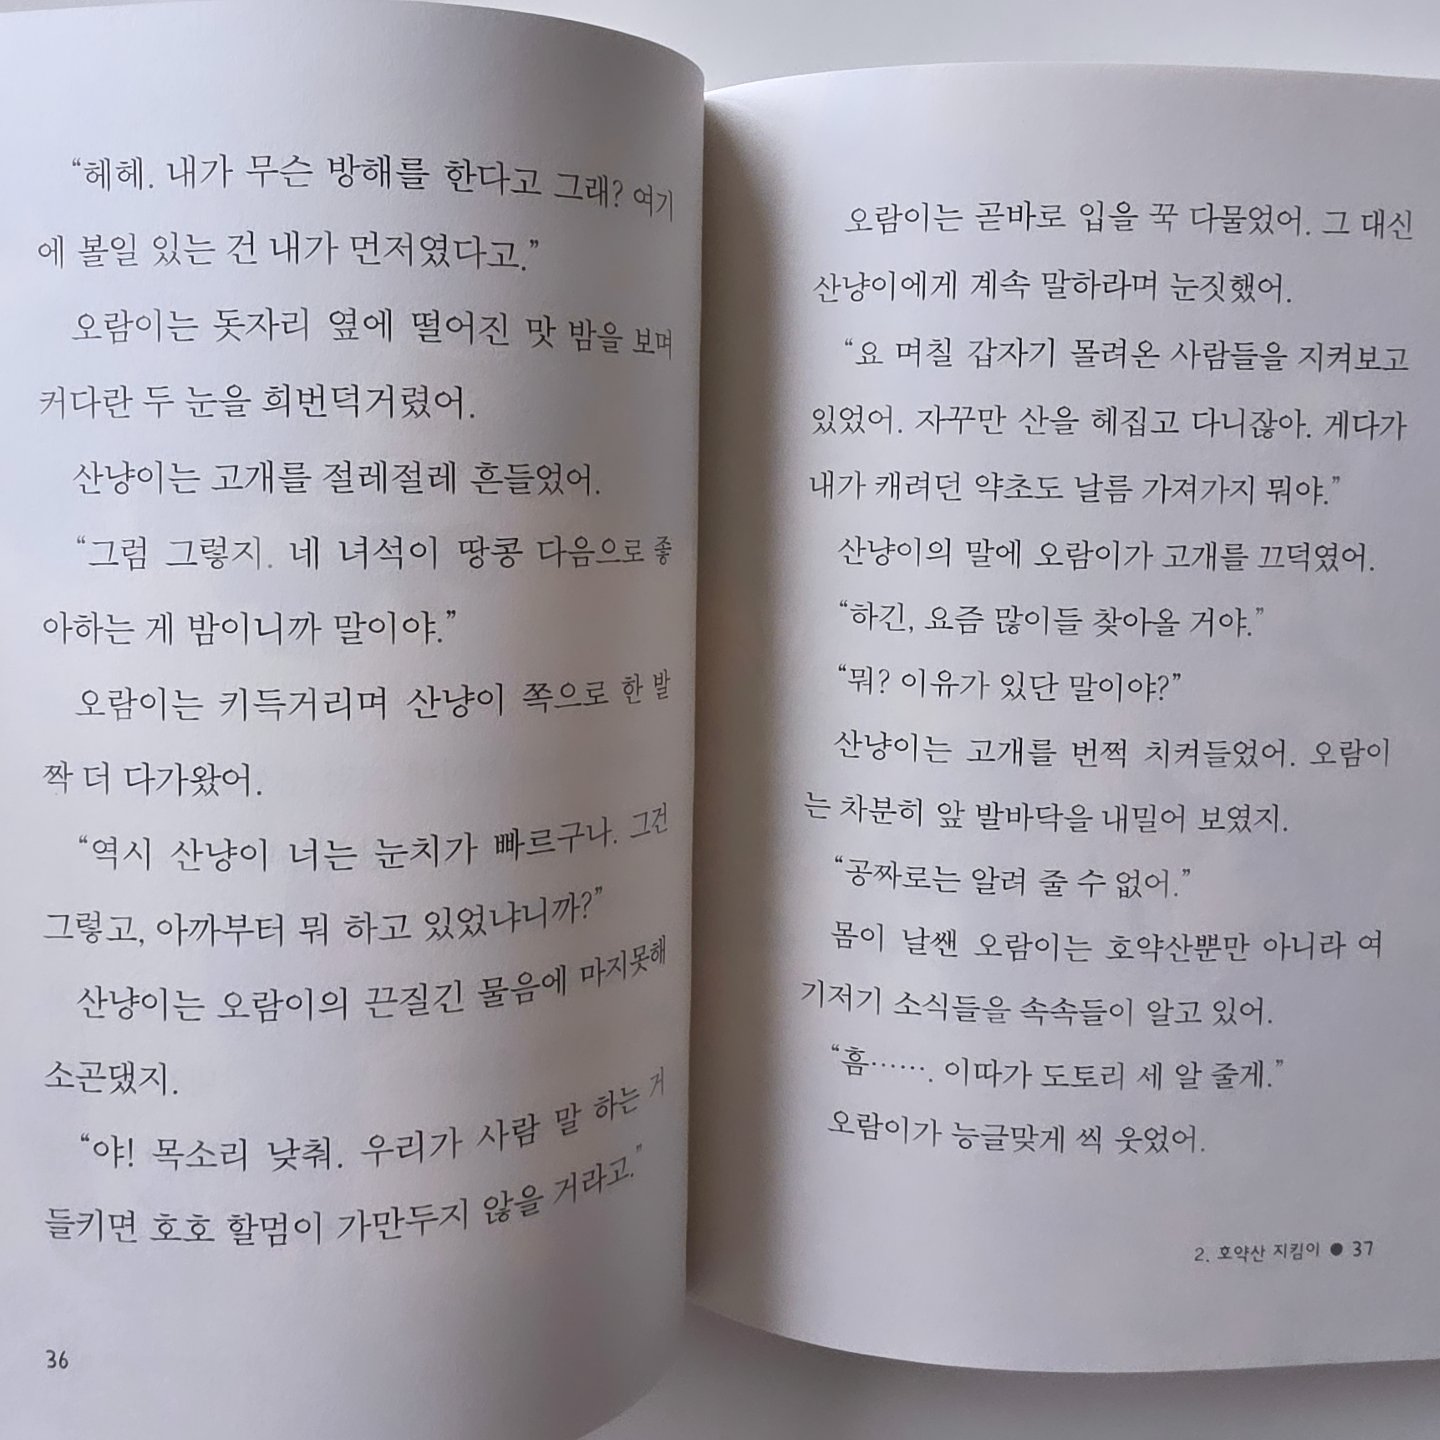 “헤헤. 내가 무슨 방해를 한다고 그래? 여기
에 볼일 있는 건 내가 먼저였다고.”
오람이는 돗자리 옆에 떨어진 맛 밤을 보며
커다란 두 눈을 희번덕거렸어.
산냥이는 고개를 절레절레 흔들었어.
“그럼 그렇지. 네 녀석이 땅콩 다음으로 좋
아하는 게 밤이니까 말이야.”
오람이는 키득거리며 산냥이 쪽으로 한 발
짝 더 다가왔어.
“역시 산냥이 너는 눈치가 빠르구나. 그건
그렇고, 아까부터 뭐 하고 있었냐니까?”
산냥이는 오람이의 끈질긴 물음에 마지못해
소곤댔지.
“야! 목소리 낮춰. 우리가 사람 말 하는 거
들키면 호호 할멈이 가만두지 않을 거라고.”
36
오람이는 곧바로 입을 꾹 다물었어. 그 대신
산냥이에게 계속 말하라며 눈짓했어.
“요 며칠 갑자기 몰려온 사람들을 지켜보고
있었어. 자꾸만 산을 헤집고 다니잖아. 게다가
내가 캐려던 약초도 날름 가져가지 뭐야.”
산냥이의 말에 오람이가 고개를 끄덕였어.
“하긴, 요즘 많이들 찾아올 거야.”
“뭐? 이유가 있단 말이야?”
산냥이는 고개를 번쩍 치켜들었어. 오람이
는 차분히 앞 발바닥을 내밀어 보였지.
“공짜로는 알려 줄 수 없어.”
몸이 날쌘 오람이는 호약산뿐만 아니라 여
기저기 소식들을 속속들이 알고 있어.
“흠……. 이따가 도토리 세 알 줄게.”
오람이가 능글맞게 씩 웃었어.
2. 호약산 지킴이 ● 37